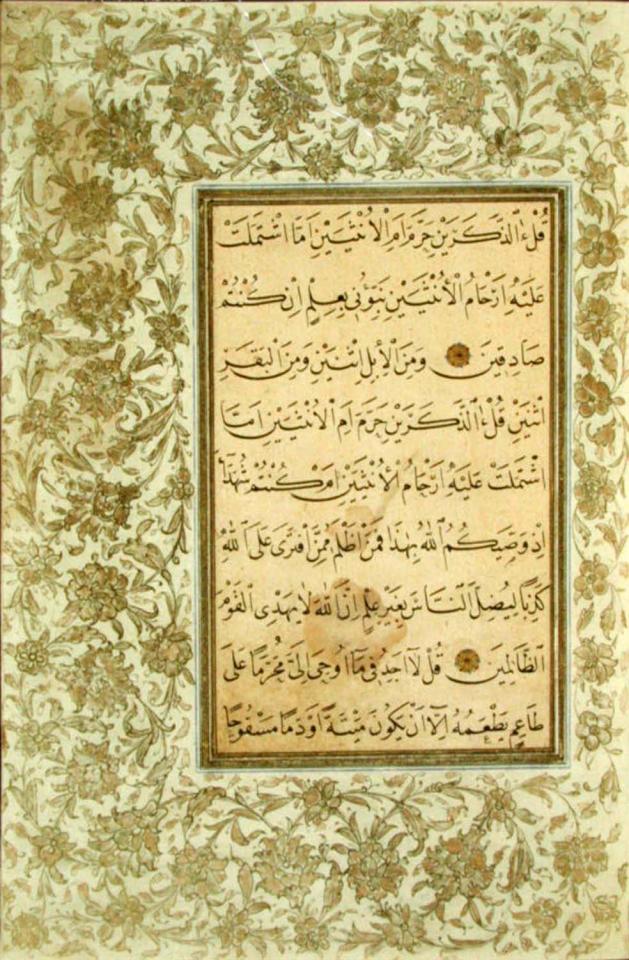 قُلْ ءَآلذَّكَرَيْنِ حَرَّمَ اَمِ الْاُنْثَيَيْنِ اَمَّا اشْتَمَلَتْ
عَلَيْهِ اَرْحَامُ الْاُنْثَيَيْنِ نَبِّؤُنٖى بِعِلْمٍ اِنْ كُنْتُمْ
صَادِقٖينَ وَمِنَ الْاِبِلِ اثْنَيْنِ وَمِنَ الْبَقَرِ
اثْنَيْنِ قُلْ ءَآلذَّكَرَيْنِ حَرَّمَ اَمِ الْاُنْثَيَيْنِ اَمَّا
اشْتَمَلَتْ عَلَيْهِ اَرْحَامُ الْاُنْثَيَيْنِ اَمْ كُنْتُمْ شُهَدَٓاءَ
اِذْ وَصّٰيكُمُ اللّٰهُ بِهٰذَا فَمَنْ اَظْلَمُ مِمَّنِ افْتَرٰى عَلَى اللّٰهِ
كَذِبًا لِيُضِلَّ النَّاسَ بِغَيْرِ عِلْمٍ اِنَّ اللّٰهَ لَا يَهْدِى الْقَوْمَ
الظَّالِمٖينَ قُلْ لَٓا اَجِدُ فٖى مَٓا اُوحِىَ اِلَىَّ مُحَرَّمًا عَلٰى
طَاعِمٍ يَطْعَمُهُٓ اِلَّٓا اَنْ يَكُونَ مَيْتَةً اَوْ دَمًا مَسْفُوحًا